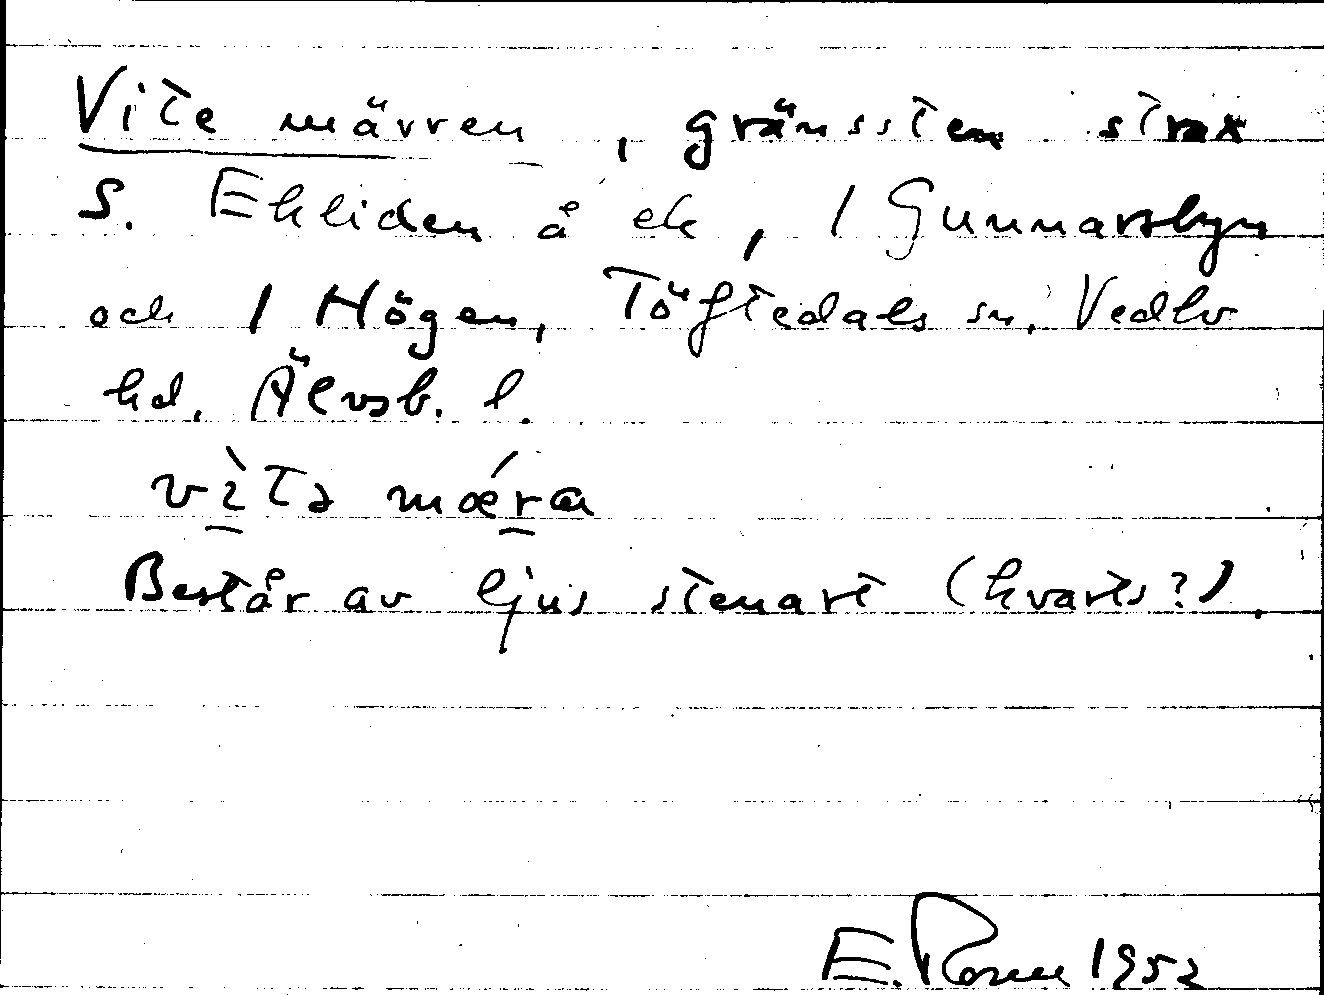 Vite mävren, gränssten strax
S. Ekliden å ek, 1 Gunnarsbyn
och 1 Högen, Töftedals sn, Vedbo
hd. Älvsb. l.
vìtə mǽra
Består av ljus stenart (kvarts?).
E. 1952